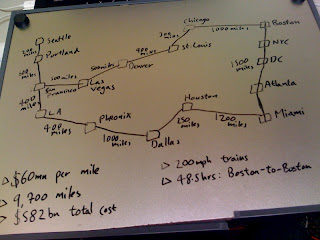 Seattle
200 miles
Portland
miles
San Francisco
500 miles
Las Vegas
500 miles
Denver
900 miles
St. Louis
300 miles
Chicago
1000 miles
Boston
NYC
DC
1500 miles
Atlanta
Miami
400 miles
LA
400 miles
Pheonix
1000 miles
Dallas
250 miles
Houston
200 miles
> $60mn per mile
> 9,700 miles
> $582bn total cost
> 200mph trains
> 48.5hrs: Boston-to-Boston